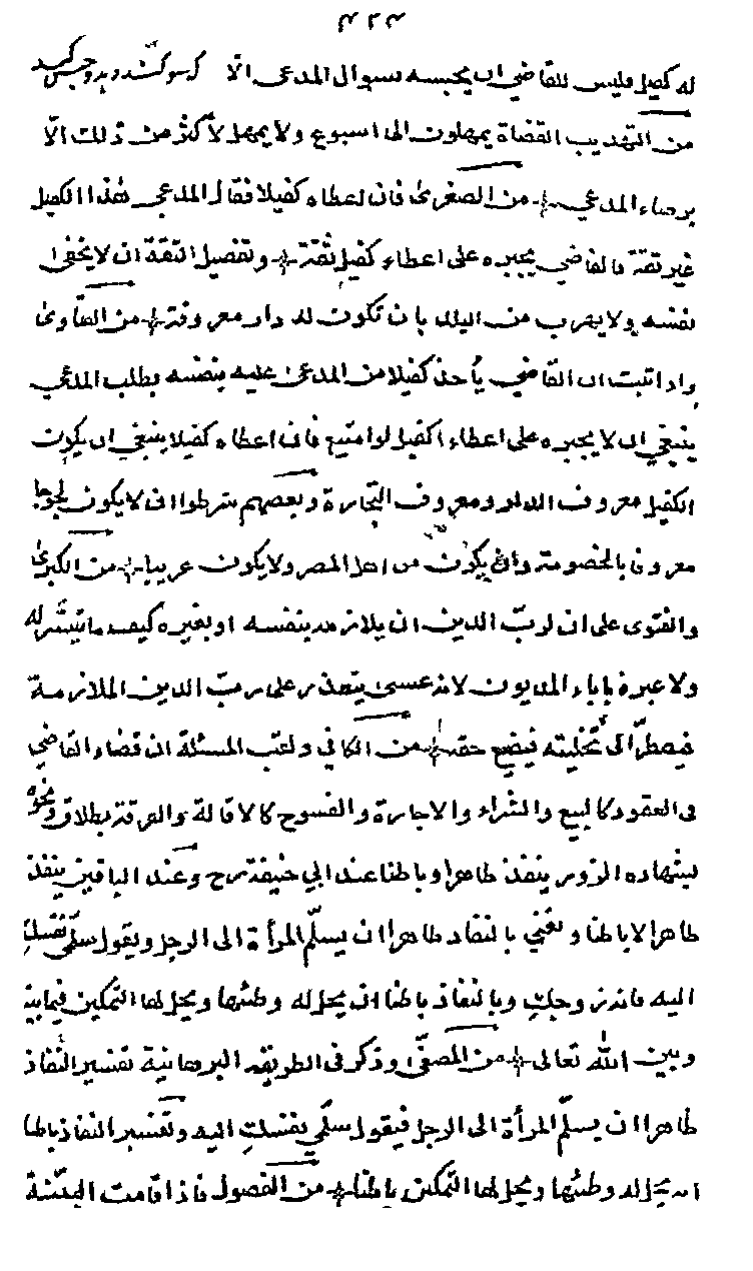 له كفيل فليس للقاضي ان يحبسه بسوال المدعى الّا
من التهذيب القضاة يمهلون الى اسبوع ولا يمهل لأكثر من ذلك الّا
برضاء المدعي من الصغرى فان اعطاه كفيلا فقال المدعي هذا الكفيل
غير ثقة فالقاضي يجبره على اعطاء كفيل ثقة وتفصيل الثقة ان لا يخفى
نفسه ولا يهرب من البلد بان تكون له دار معروفة من الفتاوى
واذا ثبت ان القاضي يأخذ كفيلا من المدعى عليه بنفسه بطلب المدعي
ينبغي ان لا يجبره على اعطاء الكفيل لو امتنع فان اعطاه كفيلا ينبغي ان يكون
الكفيل معروف الدار ومعروف التجارة وبعضهم شرطوا ان لا يكون لجوجا
معروفا بالخصومة وان يكون من اهل المصر ولا يكون غريبا من الكبرى
والفتوى على ان لربّ الدين ان يلازمه بنفسه او بغيره كيف ما تيسّر له
ولا عبرة باباء المديون لانه عسى يتعذر على ربّ الدين الملازمة
فيضطرّ الى تخليته فيضيع حقه من الكافي ولقب المسئلة ان قضاء القاضي
فى العقود كالبيع والشراء والاجارة والفسوخ كالاقالة والفرقة بطلاق ونحوه
بشهادة الزور ينفذ ظاهرا وباطنا عند ابي حنيفة رح وعند الباقين ينفذ
ظاهرا لا باطنا ونعني بالنفاد ظاهرا ان يسلّم المرأة الى الرجل ويقول سلّمي نفسك
اليه فانه زوجكِ وبالنفاذ باطنا ان يحل له وطئها ويحل لها التمكين فيما بينه
وبين الله تعالى من المصفّى وذكر فى الطريقة البرهانية تفسير النّفاذ
ظاهرا ان يسلّم المرأة الى الرجل فيقول سلّمي نفسكِ اليه وتفسير النفاذ باطنا
ان يحل له وطئها ويحل لها التمكين باطنا من الفصول فاذا اقامت البيّنة